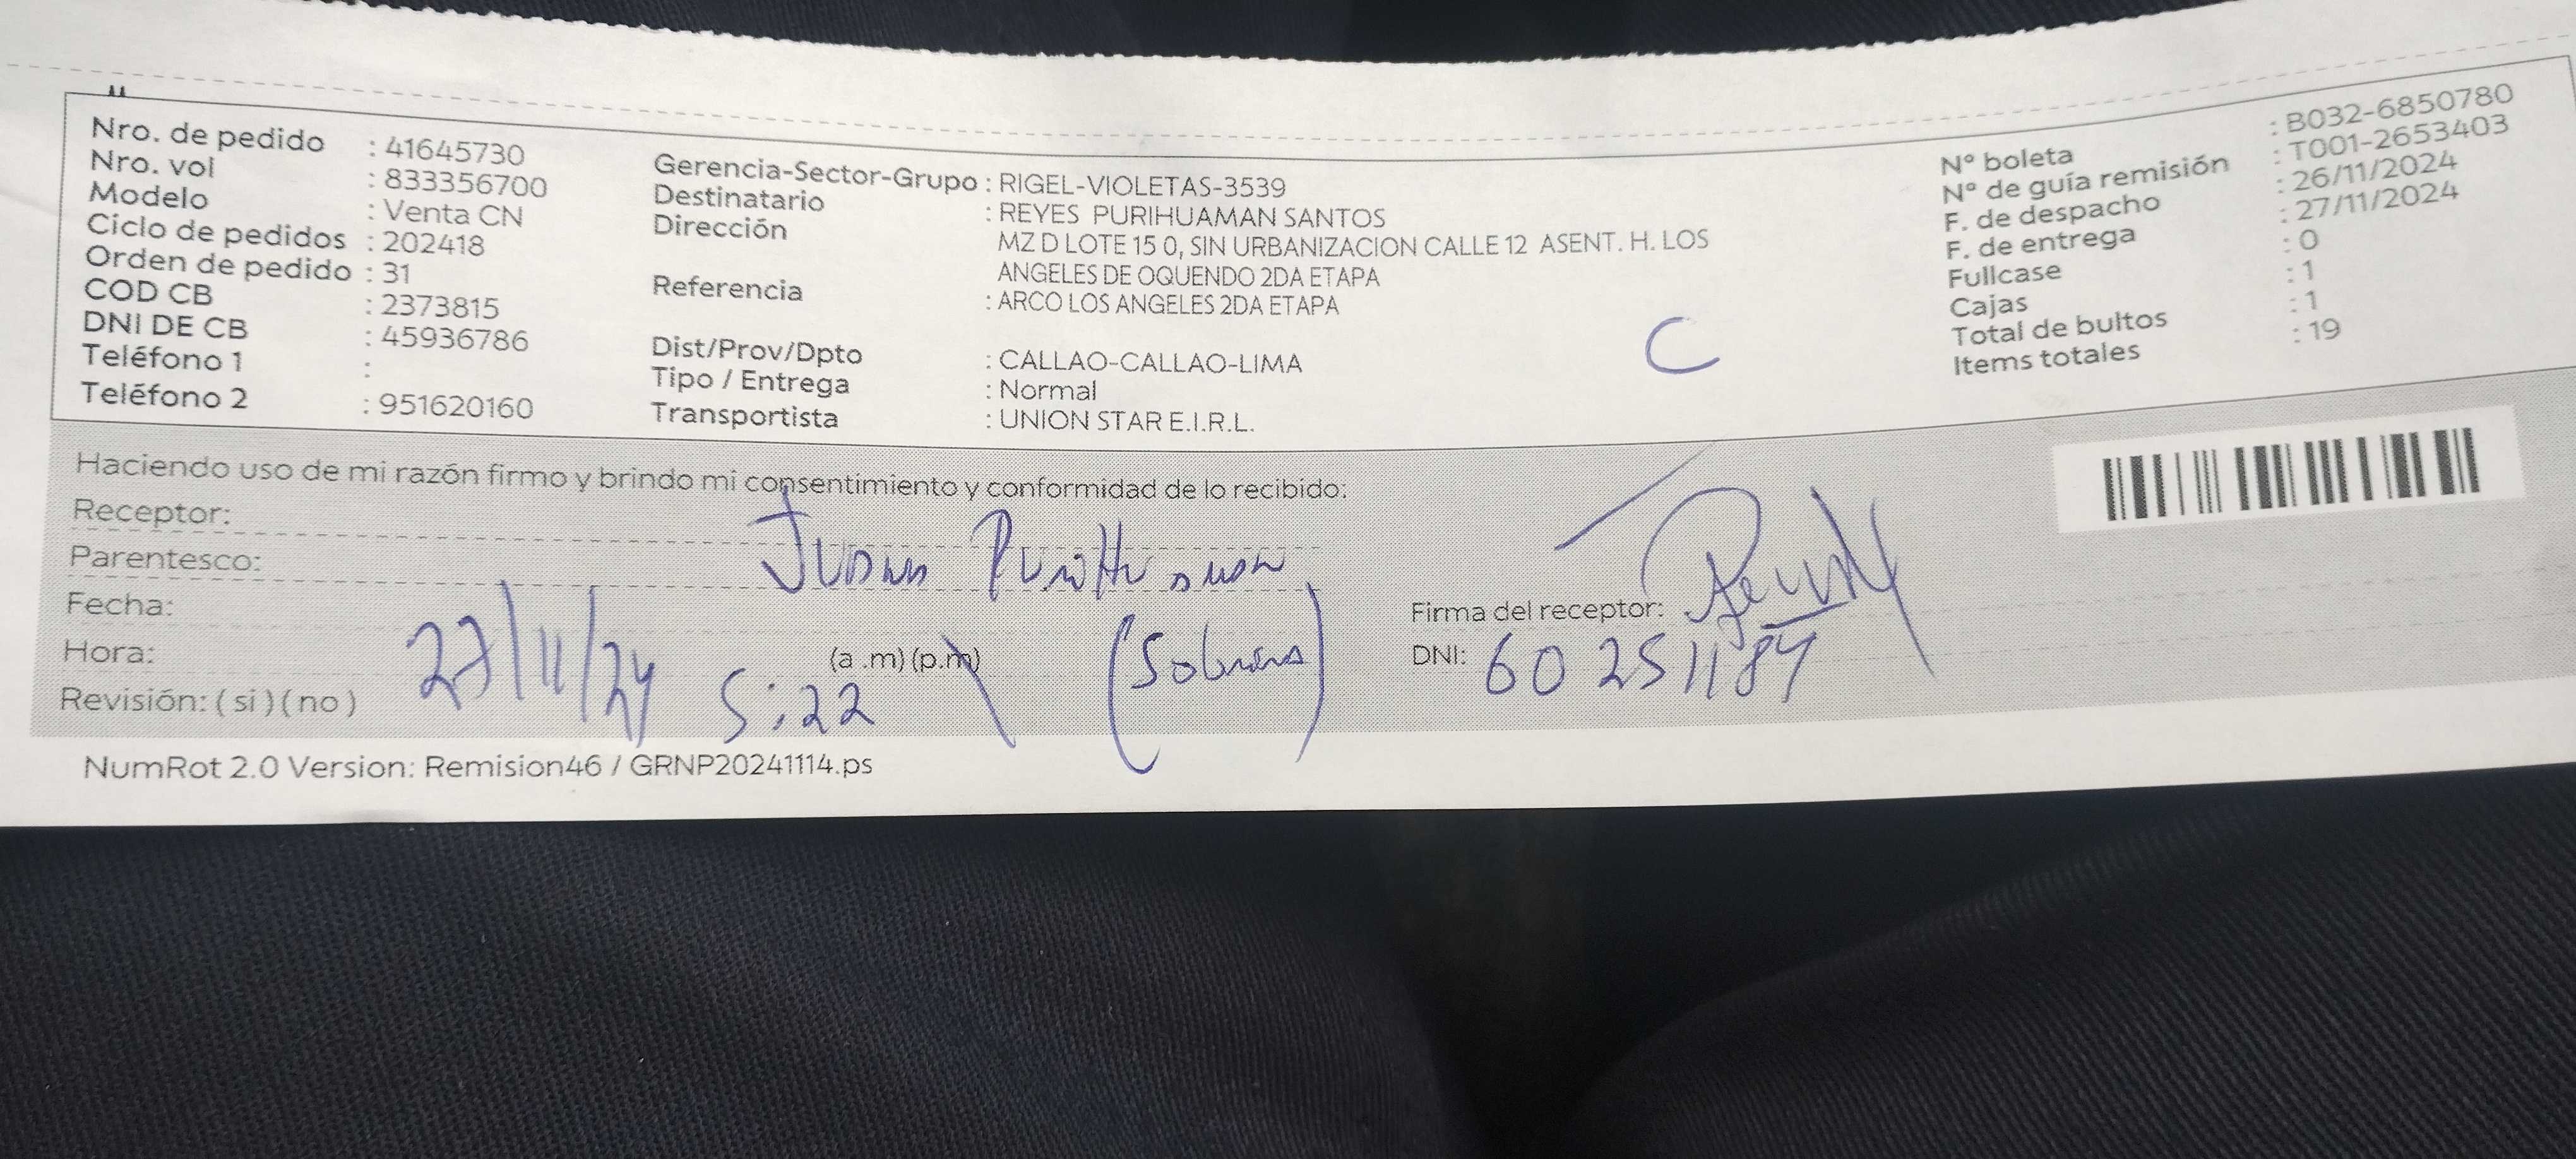 Nro. de pedido : 41645730
Nro. vol : 833356700
Modelo : Venta CN
Ciclo de pedidos : 202418
Orden de pedido : 31
COD CB : 2373815
DNI DE CB : 45936786
Teléfono 1 :
Teléfono 2 : 951620160
Gerencia-Sector-Grupo : RIGEL-VIOLETAS-3539
Destinatario : REYES PURIHUAMAN SANTOS
Dirección MZ D LOTE 15 0, SIN URBANIZACION CALLE 12 ASENT. H. LOS
ANGELES DE OQUENDO 2DA ETAPA
Referencia : ARCO LOS ANGELES 2DA ETAPA
Dist/Prov/Dpto : CALLAO-CALLAO-LIMA
Tipo / Entrega : Normal
Transportista : UNION STAR E.I.R.L.
C
N° boleta : B032-6850780
N° de guía remisión : T001-2653403
F. de despacho : 26/11/2024
F. de entrega : 27/11/2024
Fullcase : 0
Cajas : 1
Total de bultos : 1
Items totales : 19
Haciendo uso de mi razón firmo y brindo mi consentimiento y conformidad de lo recibido:
Receptor:
Parentesco: PuriHuaman
Fecha: 27/11/24
Hora: 5:22 (a .m) (p.m)
Revisión: ( si ) ( no )
Firma del receptor:
DNI: 60251184
NumRot 2.0 Version: Remision46 / GRNP20241114.ps